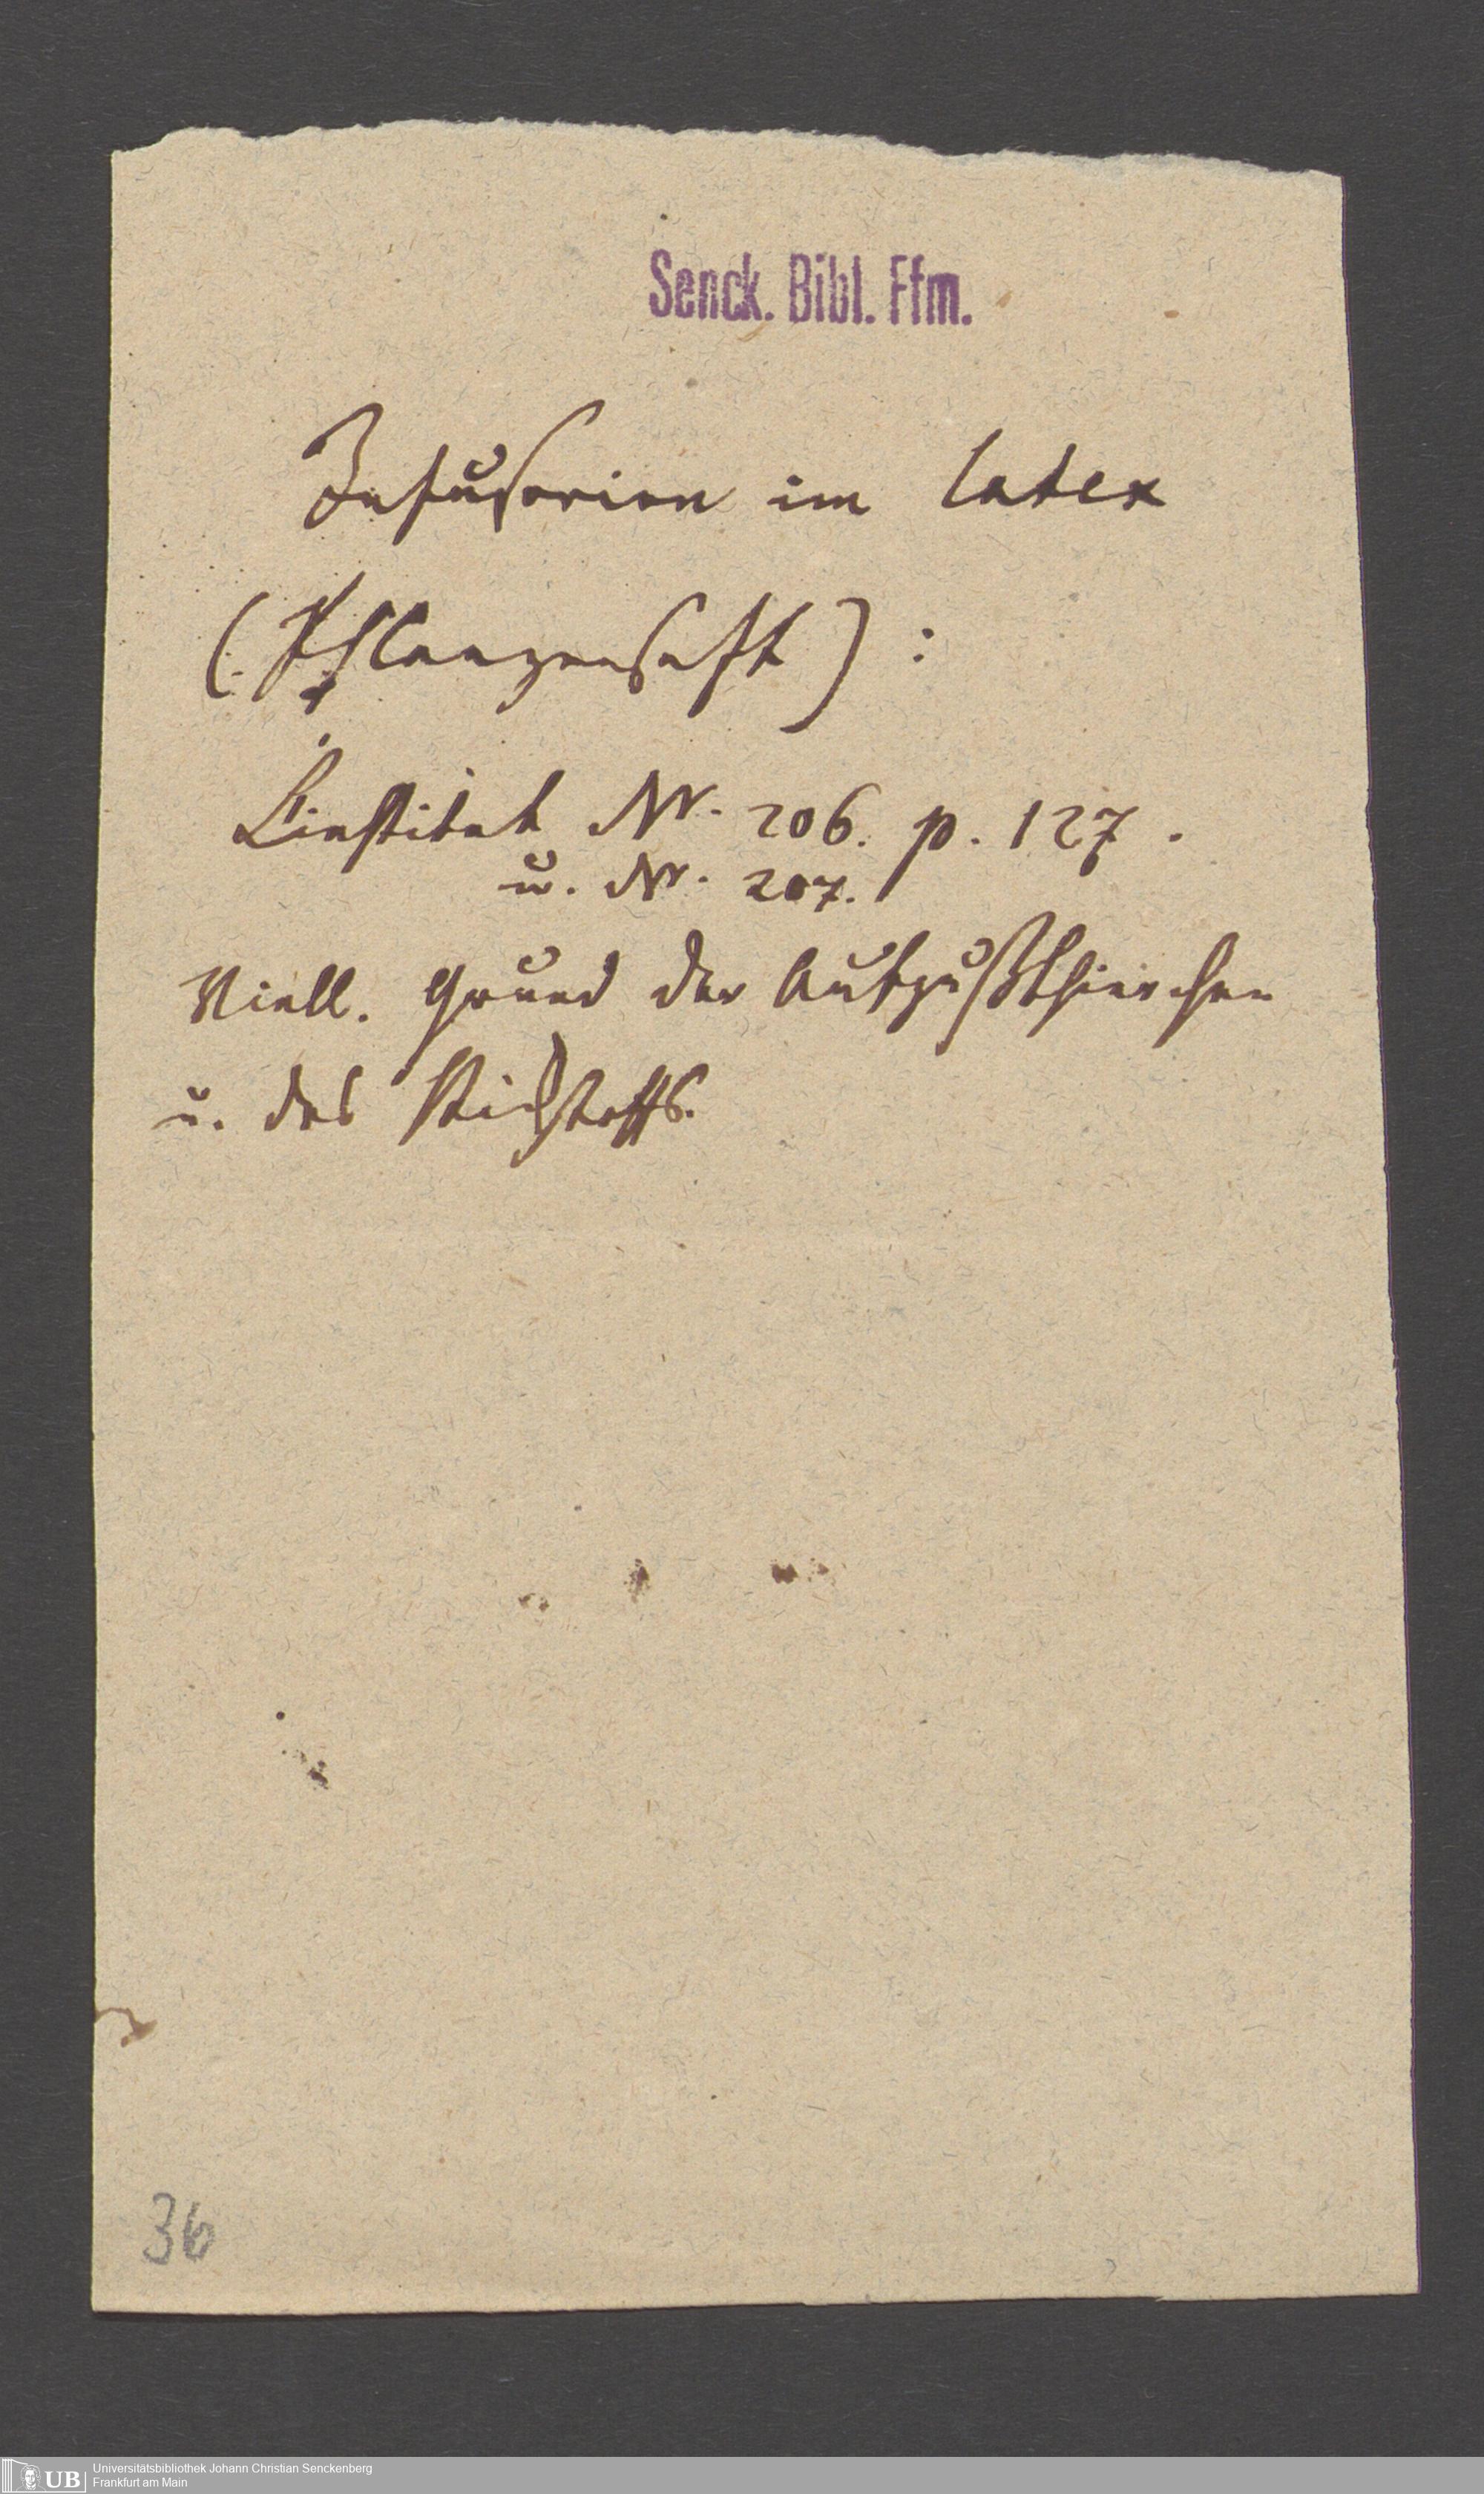 Senck. Bibl. Ffm.
Infusorien im latex
(Pflanzensaft):
L'institut Nr. 206. p. 127.
u. Nr. 207.
Viell. Grund der Aufgußthierchen
u. des Stickstoffs.
36
UB
Universitätsbibliothek Johann Christian Senckenberg
Frankfurt am Main